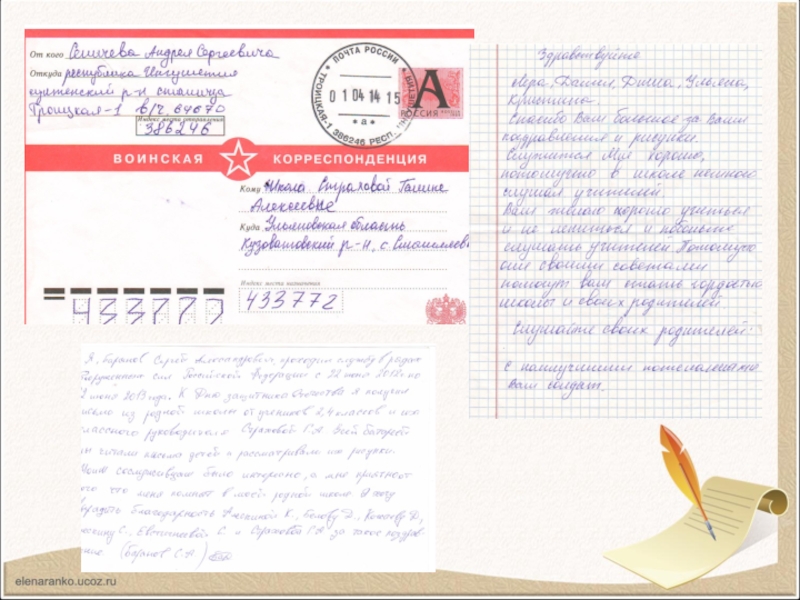 От кого Сеничева Андрея Сергеевича
Откуда республика Ингушетия
р-н станица
Троицкая-1 в/ч 64670
Индекс места отправления
386246
ПОЧТА РОССИИ
01 04 14 15
* а *
ТРОИЦКАЯ-1 386246 РЕСП. ИНГУШЕТИЯ
А
РОССИЯ
ВОИНСКАЯ КОРРЕСПОНДЕНЦИЯ
Кому Школа Страховой Галине
Алексеевне
Куда Ульяновская область
Кузоватовский р-н, с.
Индекс места назначения
433772
433772
Здравствуйте
Лера, Данил, Дима, Ульяна,
Кристина.
Спасибо Вам большое за Ваши
поздравления и рисунки.
Служится Мне хорошо,
потомучто в школе немного
слушал учителей.
Вам желаю хорошо учиться
и не лениться и
слушать учителей Потомучто
они своими советами
помогут вам стать гордостью
школы и своих родителей.
Слушайте своих родителей.
С наилучшими пожеланиями
Ваш солдат.
Я, Баранов Сергей Александрович, проходил службу в рядах
Вооруженных сил Российской Федерации с 22 июня 2012 по
июня 2013 года. К Дню защитника Отечества я получил
письмо из родной школы от учеников 2,4 классов и их
классного руководителя Страховой Г.А Всей батареей
мы читали письма детей и рассматривали их рисунки.
сослуживцам было интересно, а мне приятно от
того что меня помнят в моей родной школе Я хочу
выразить благодарность К., Д., Д,
С., С. и Страховой Г.А за такое поздрав-
ление (Баранов С.А)
elenaranko.ucoz.ru